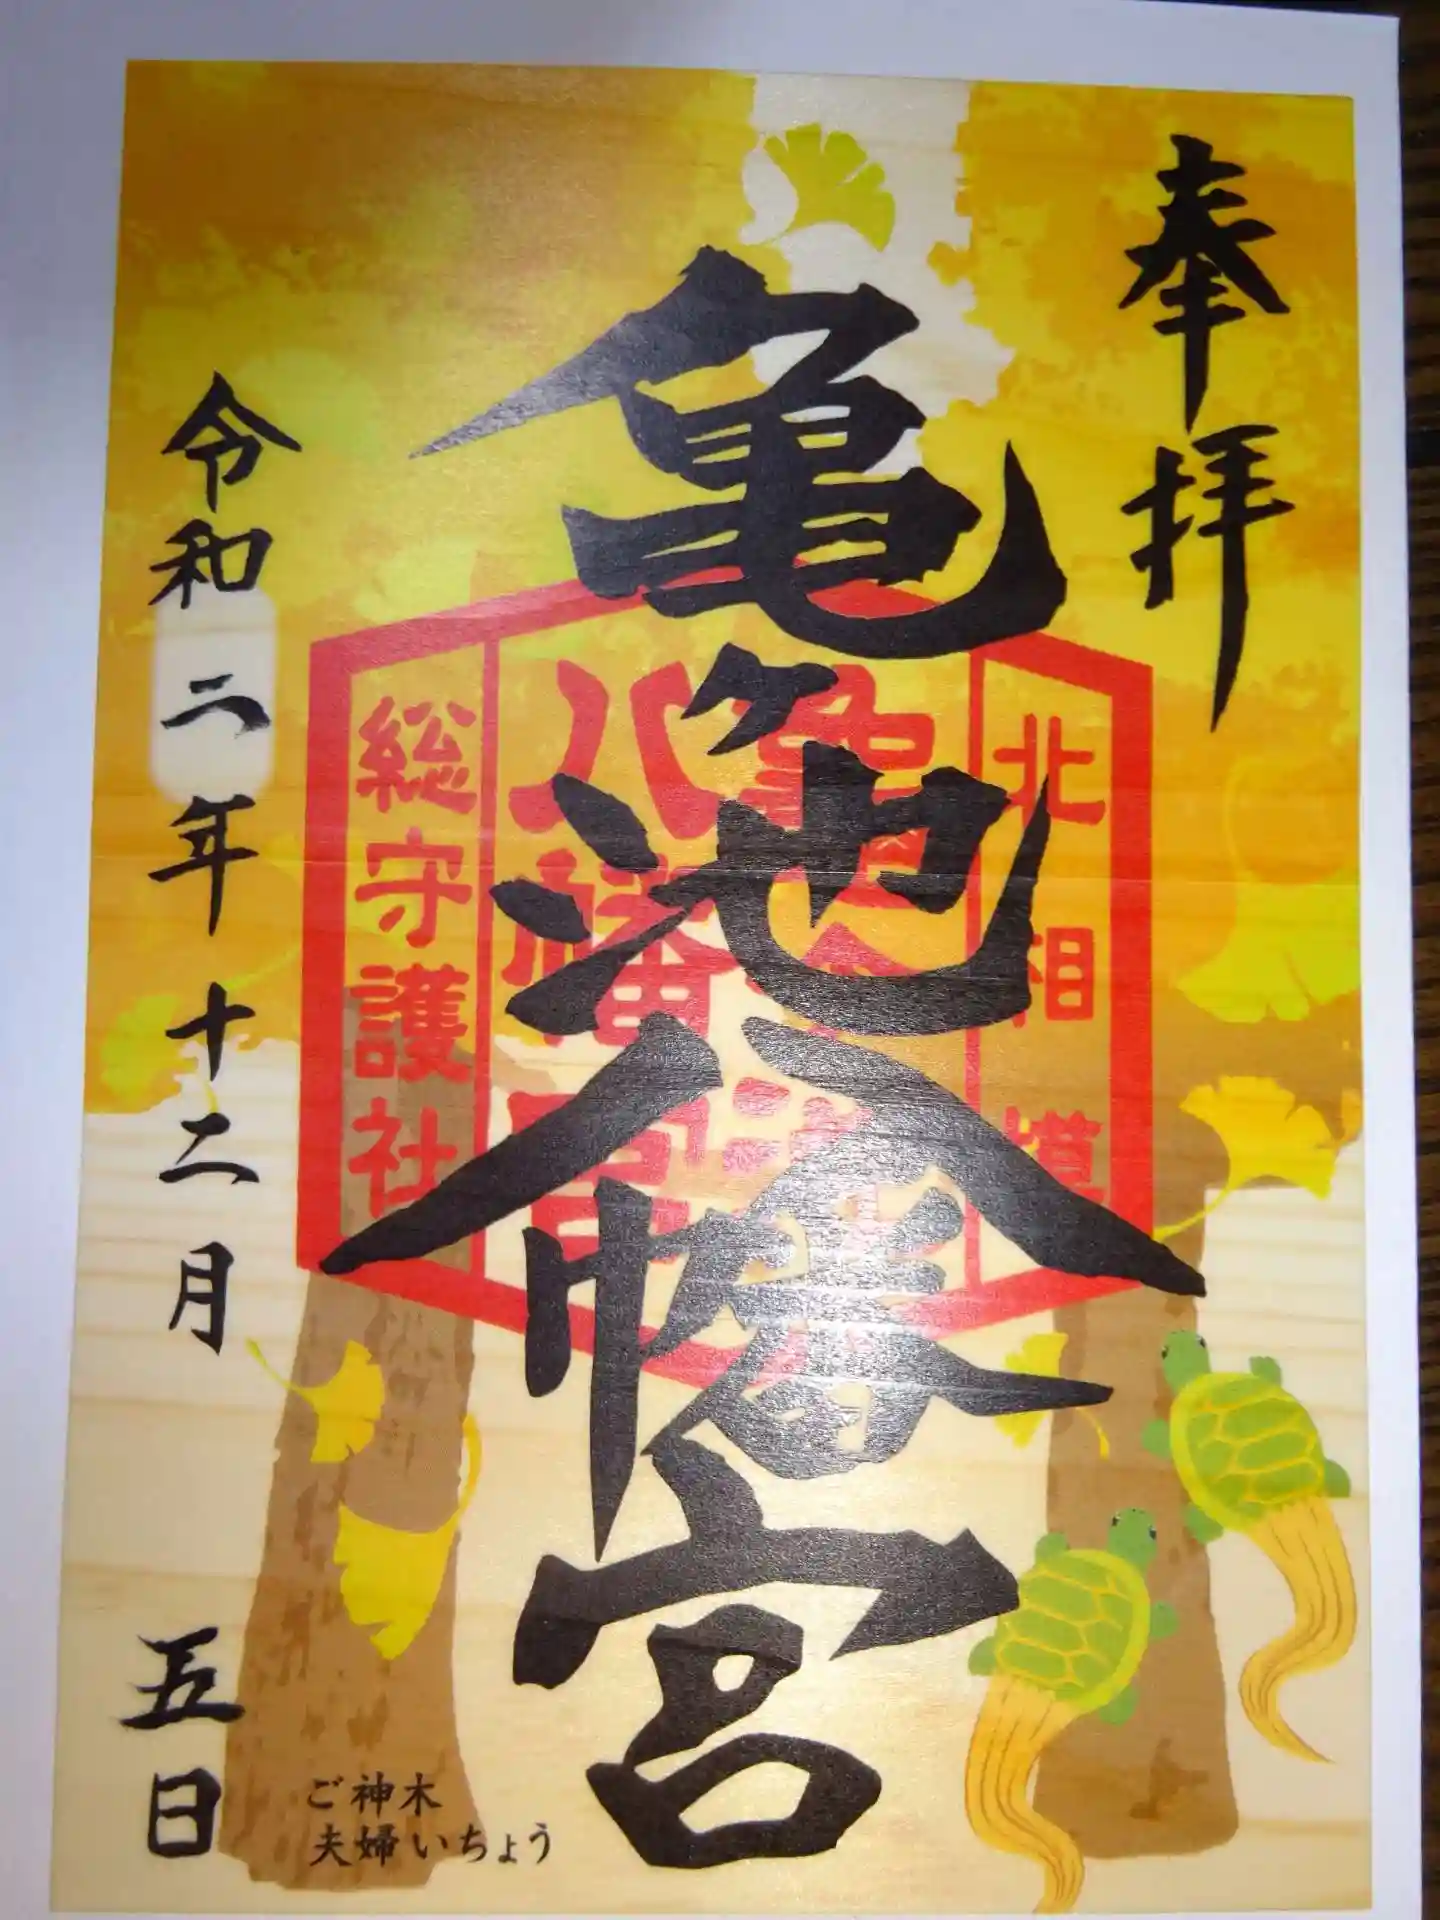 奉拝
亀ヶ池八幡宮
北相模
亀ヶ池
八幡宮
総守護社
令和二年十二月五日
ご神木
夫婦いちょう